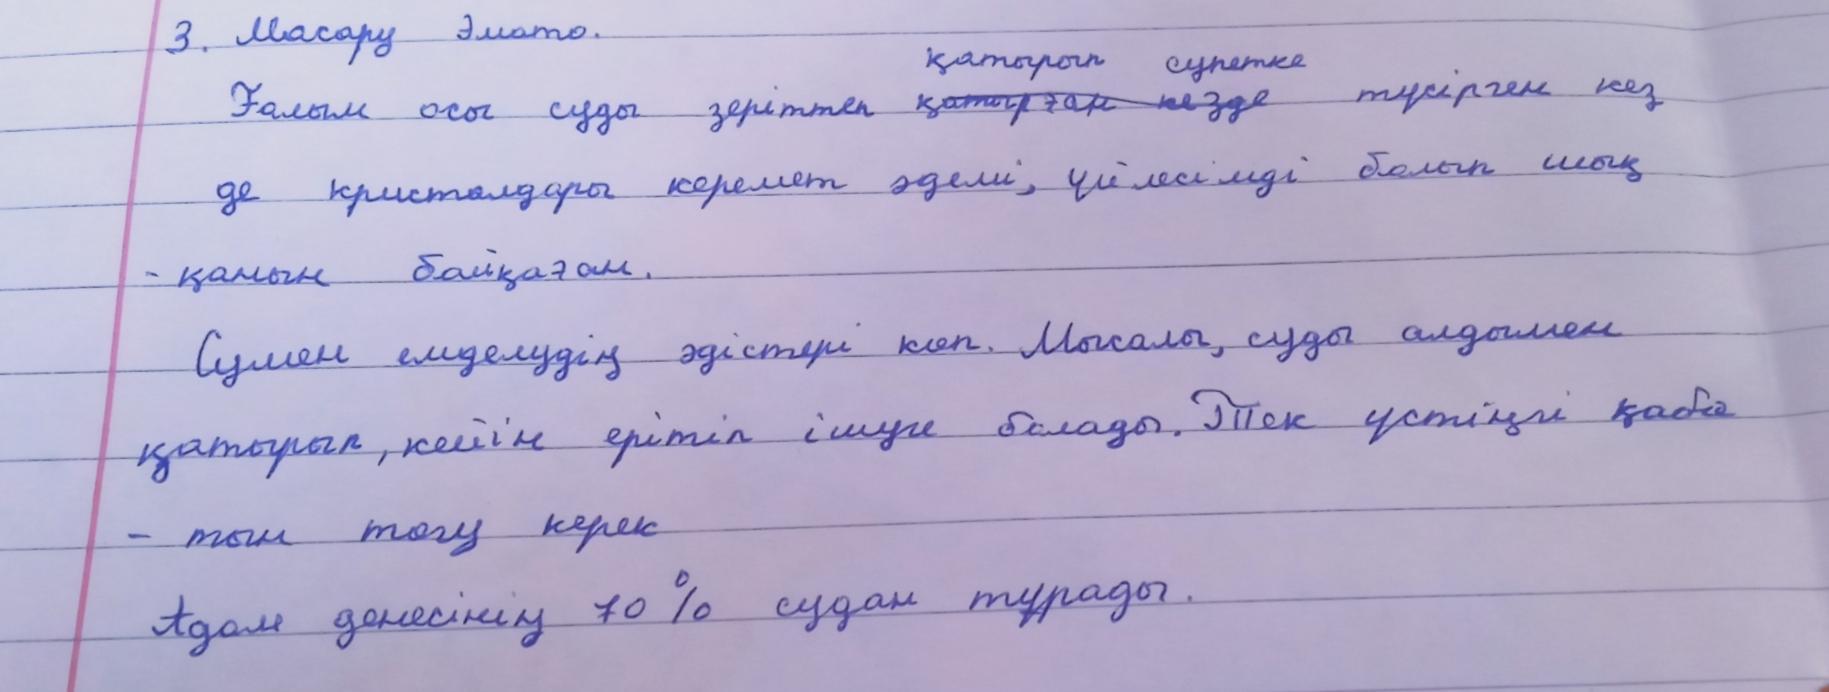 3. Масару Эмото.
қатырып суретке
Ғалым осы суды зеріттеп қатырған кезде түсірген кез
де кристалдары керемет әдемі, үйлесімді болып шық
- қанын байқаған.
Сумен емделудің әдістері көп. Мысалы, суды алдымен
қатырып, кейін ерітіп ішуге болады. Тек үстіңгі қаба
- тын төгу керек
Адам денесінің 70% судан тұрады.